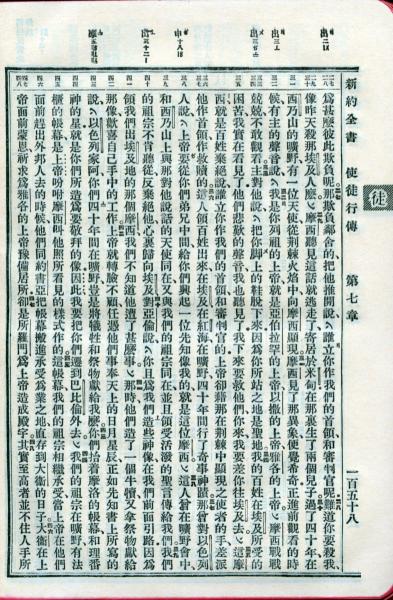 新約全書 使徒行傳 第七章 一百五十八
徒
爲甚麽彼此欺負呢那欺負鄰舍的把他推開說誰立你作我們的首領和審判官呢難道你要殺我
像昨天殺那埃及人麽摩西聽見這話就逃走了寄居於米甸在那裏生了兩個兒子過了四十年在
西乃山的曠野有一位天使從荆棘火焰中向摩西顯現摩西見了那異象便覺希奇正進前觀看的時
候有主的聲音說我是你列祖的上帝就是亞伯拉罕的上帝以撒的上帝雅各的上帝摩西戰戰
兢兢不敢觀看主對他說把你脚上的鞋脫下來因爲你所站之地是聖地我的百姓在埃及所受的
困苦我實在看見了他們悲歎的聲音我也聽見了我下來要救他們你來我要差你往埃及去這摩
西就是百姓棄絕說誰立你作我們的首領和審判官的上帝卻藉那在荆棘中顯現之使者的手差派
他作首領作救贖的這人領百姓出來在埃及在紅海在曠野四十年間行了奇事神蹟那曾對以色列
人說上帝要從你們弟兄中間給你們興起一位先知像我的就是這位摩西這人曾在曠野會中
和西乃山上與那對他說話的天使同在又與我們的祖宗同在並且領受活潑的聖言傳給我們我們
的祖宗不肯聽從反棄絕他心裏歸向埃及對亞倫說你且爲我們造些神像在我們前面引路因爲
領我們出埃及地的那個摩西我們不知道他遭了甚麽事那時他們造了一個牛犢又拿祭物獻給
那像歡喜自己手中的工作上帝就轉臉不顧任憑他們事奉天上的日月星辰正如先知書上所寫的
說以色列家阿你們四十年間在曠野豈是將犧牲和祭物獻給我麽你們抬着摩洛的帳幕和理番
神的星就是你們所造爲要敬拜的像因此我要把你們遷到巴比倫外去我們的祖宗在曠野有法
櫃的帳幕是上帝吩咐摩西叫他照所看見的樣式作的這帳幕我們的祖宗相繼承受當上帝在他們
面前趕出外邦人去的時候他們同約書亞把帳幕搬進承受爲業之地直存到大衛的日子大衛在上
帝面前蒙恩祈求爲雅各的上帝豫備居所卻是所羅門爲上帝造成殿宇其實至高者並不住人手所